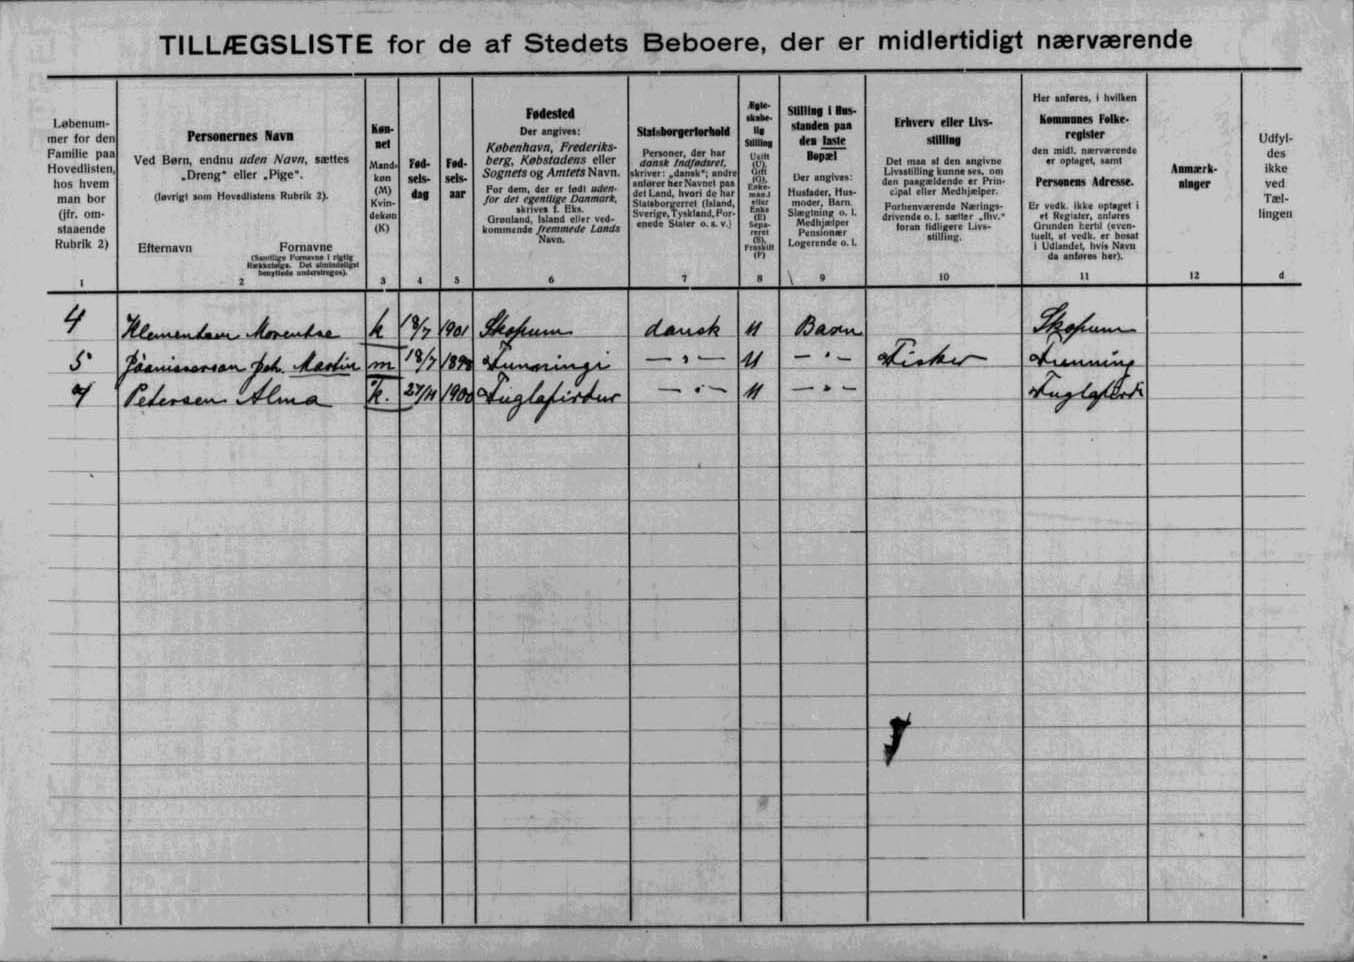 TILLÆGSLISTE for de af Stedets Beboere, der er midlertidigt nærværende
Løbenum-
mer for den
Familie paa
Hovedlisten,
hos hvem
man bor
(jfr. om-
staaende
Rubrik 2)
1
Personernes Navn
Ved Børn, endnu uden Navn, sættes
„Dreng“ eller „Pige“.
(Iøvrigt som Hovedlistens Rubrik 2).
Efternavn Fornavne
(Samtlige Fornavne i rigtig
Rækkefølge. Det almindeligst
benyttede understreges).
2
Køn-
net
Mand-
køn
(M)
Kvin-
dekøn
(K)
3
Fød-
sels-
dag
4
Fød-
sels-
aar
5
Fødested
Der angives:
København, Frederiks-
berg, Købstadens eller
Sognets og Amtets Navn.
For dem, der er født uden-
for det egentlige Danmark,
skrives f. Eks.
Grønland, Island eller ved-
kommende fremmede Lands
Navn.
6
Statsborgerforhold
Personer, der har
dansk Indfødsret,
skriver: „dansk“; andre
anfører her Navnet paa
det Land, hvori de har
Statsborgerret (Island,
Sverige, Tyskland, For-
enede Stater o. s. v.)
7
Ægte-
skabe-
lig
Stilling
Ugift
(U),
Gift
(G),
Enke-
mand
eller
Enke
(E)
Sepa-
reret
(S),
Fraskilt
(F)
8
Stilling i Hus-
standen paa
den faste
Bopæl
Der angives:
Husfader, Hus-
moder, Barn,
Slægtning o. l.
Medhjælper
Pensionær
Logerende o. l.
9
Erhverv eller Livs-
stilling
Det maa af den angivne
Livsstilling kunne ses, om
den paagældende er Prin-
cipal eller Medhjælper.
Forhenværende Nærings-
drivende o. l. sætter „fhv.“
foran tidligere Livs-
stilling.
10
Her anføres, i hvilken
Kommunes Folke-
register
den midl. nærværende
er optaget, samt
Personens Adresse.
Er vedk. ikke optaget i
et Register, anføres
Grunden hertil (even-
tuelt, at vedk. er bosat
i Udlandet, hvis Navn
da anføres her).
11
Anmærk-
ninger
12
Udfyl-
des
ikke
ved
Tæl-
lingen
d
4 k 18/7 1901 Skopum dansk U Barn Skopum
5 Martin m 18/7 Funningi — „ — U — „ — Fisker Funning
7 Petersen Alma k. 27/11 1900 Fuglafirdur — „ — U — „ —